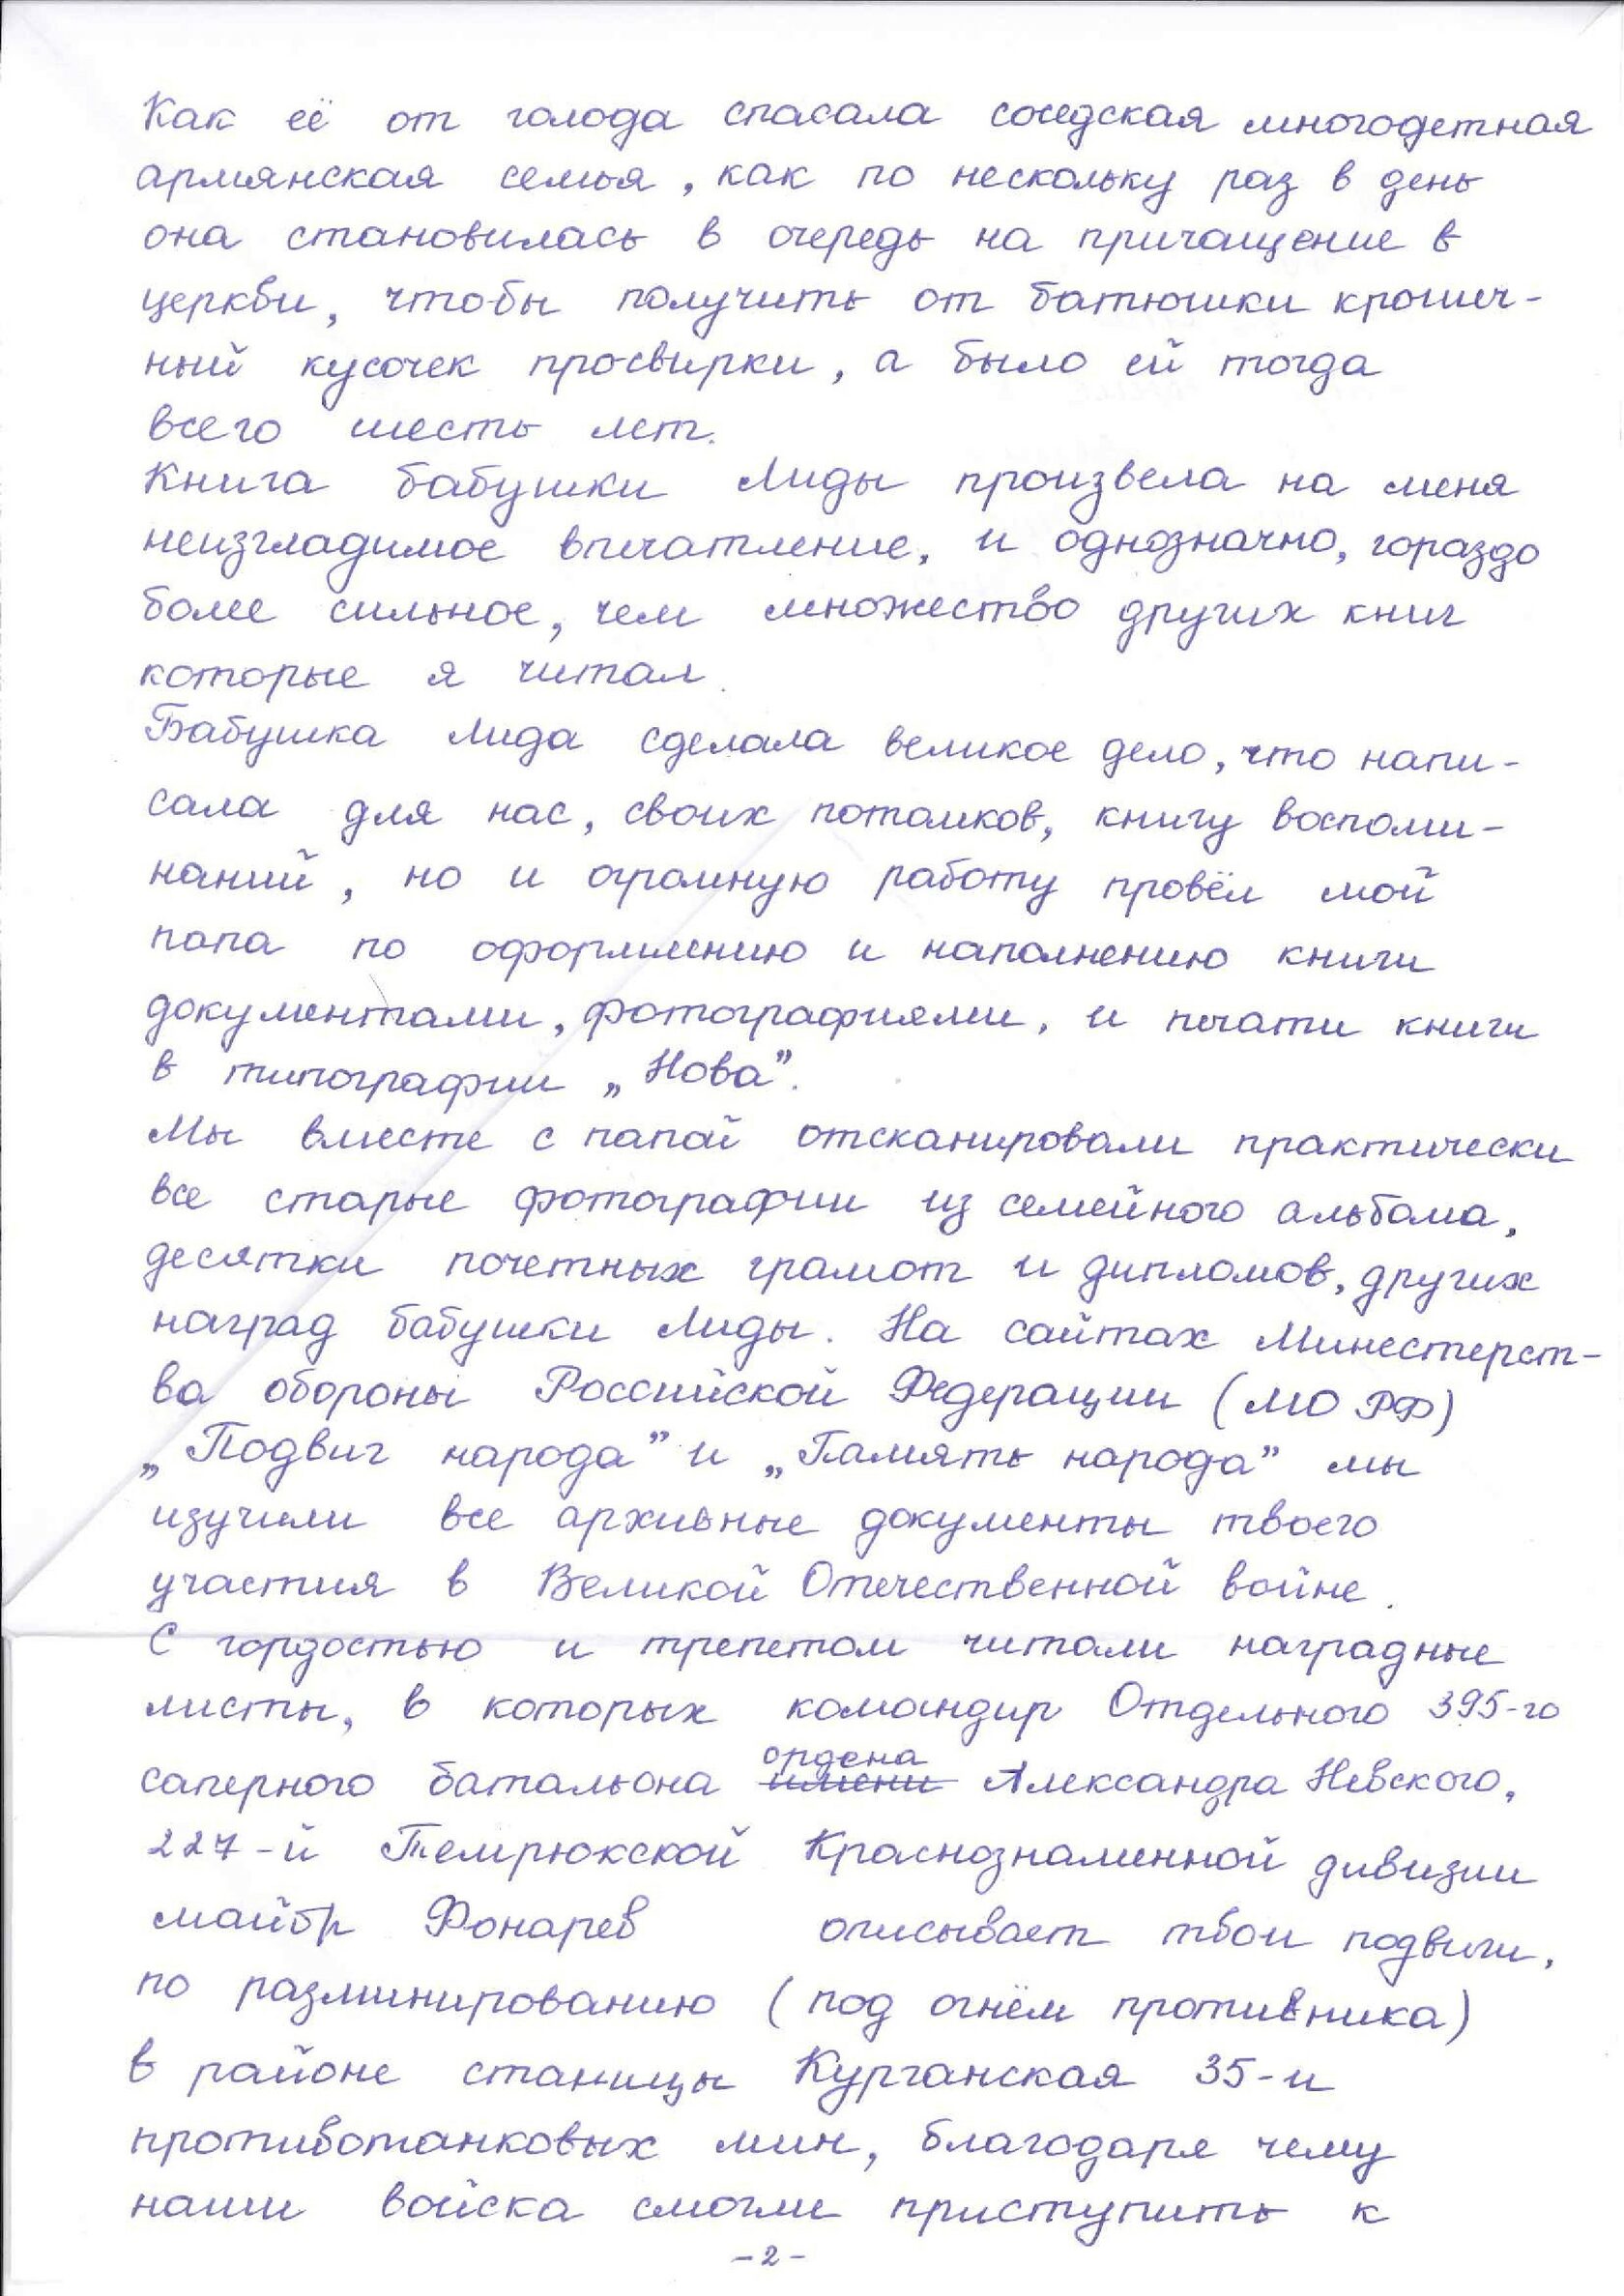 Как её от голода спасала соседская многодетная
армянская семья, как по нескольку раз в день
она становилась в очередь на причащение в
церкви, чтобы получить от батюшки крошеч-
ный кусочек просвирки, а было ей тогда
всего шесть лет.
Книга бабушки Лиды произвела на меня
неизгладимое впечатление, и однозначно, гораздо
более сильное, чем множество других книг
которые я читал.
Бабушка Лида сделала великое дело, что напи-
сала для нас, своих потомков, книгу воспоми-
наний, но и огромную работу провёл мой
папа по оформлению и наполнению книги
документами, фотографиями, и печати книги
в типографии „Нова”.
Мы вместе с папой отсканировали практически
все старые фотографии из семейного альбома,
десятки почетных грамот и дипломов, других
наград бабушки Лиды. На сайтах Министерст-
ва обороны Российской Федерации (МО РФ)
„Подвиг народа” и „Память народа” мы
изучили все архивные документы твоего
участия в Великой Отечественной войне.
С гордостью и трепетом читали наградные
листы, в которых командир Отдельного 395-го
ордена
саперного батальона имени Александра Невского,
227-й Темрюкской Краснознаменной дивизии
майор Фонарев описывает твои подвиги,
по разминированию (под огнём противника)
в районе станицы Курганская 35-и
противотанковых мин, благодаря чему
наши войска смогли приступить к
-2-